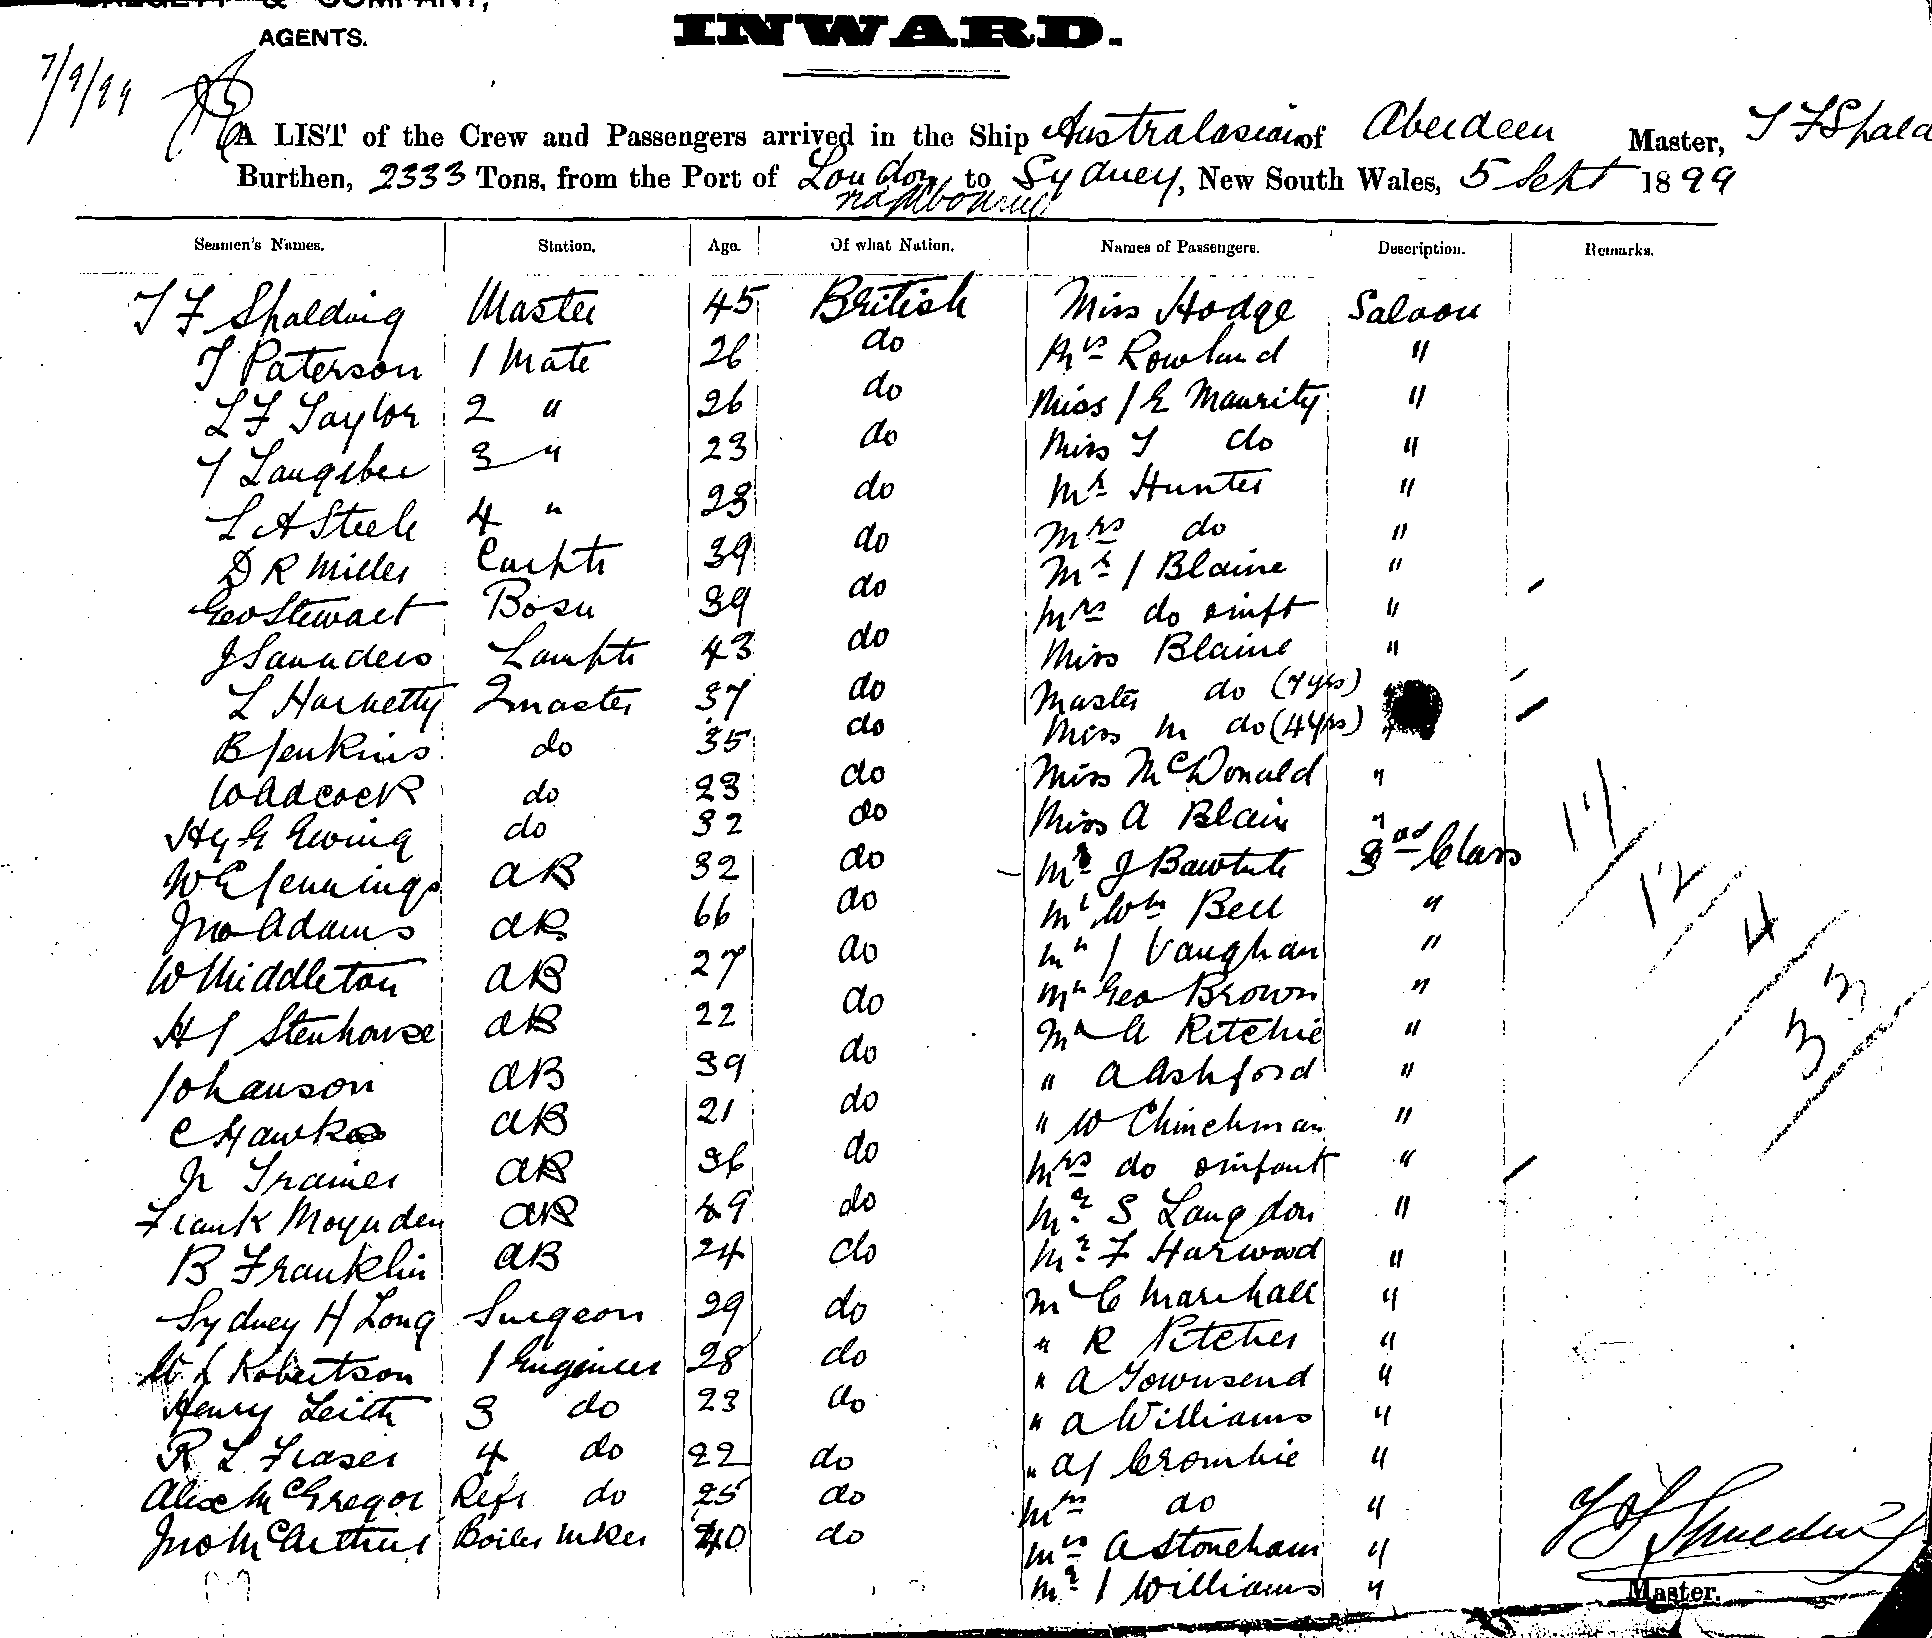 & COMPANY,
AGENTS.
INWARD.
7/9/99
A LIST of the Crew and Passengers arrived in the Ship Australasian of Aberdeen Master, T F Spald
Burthen, 2333 Tons, from the Port of London to Sydney, New South Wales, 5 Sept 1899
via Melbourne
Seamen's Names. Station. Age. Of what Nation. Names of Passengers. Description. Remarks.
T F Spalding Master 45 British Miss Hodge Saloon
T Paterson 1 Mate 26 do Mrs Rowland "
L F Taylor 2 " 26 do Miss J E Maurity "
T Langsbee 3 " 23 do Miss T do "
L A Steele 4 " 23 do Mr Hunter "
Mrs do "
D R Miller Carptr 39 do Mr J Blaine "
Geo Stewart Bosn 39 do Mrs do & inft "
J Saunders Lamptr 43 do Miss Blaine "
L Harnetty Qmaster 37 do Master do (7 yrs) "
B Jenkins do 35 do Miss M do (4 yrs) "
W Adcock do 23 do Miss McDonald "
Hy G Ewing do 32 do Miss A Blain "
W E Jennings AB 32 do Mr J Bawtute 3rd Class
Jno Adams AB 66 do Mr Wm Bell "
W Middleton AB 27 do Mr J Vaughan "
Mr Geo Brown "
H J Stenhouse AB 22 do Mr A Ritchie "
Johanson AB 39 do " A Ashford "
C Hawkes AB 21 do " W Chinchman "
Jn Trainer AB 36 do Mrs do & infant "
Frank Moynden AB 49 do Mr S Langdon "
B Franklin AB 24 do Mr F Harwood "
Sydney H Long Surgeon 29 do Mr C Marshall "
W J Robertson 1 Engineer 28 do " R Pitcher "
" A Townsend "
Henry Leith 3 do 23 do " A Williams "
R L Fraser 4 do 22 do " A J Crombie "
Alex McGregor Refr do 25 do Mrs do "
Jno McArthur Boiler Mker 40 do Mrs A Stoneham "
Mr J Williams "
17
12
4
33
T F Spalding
Master.